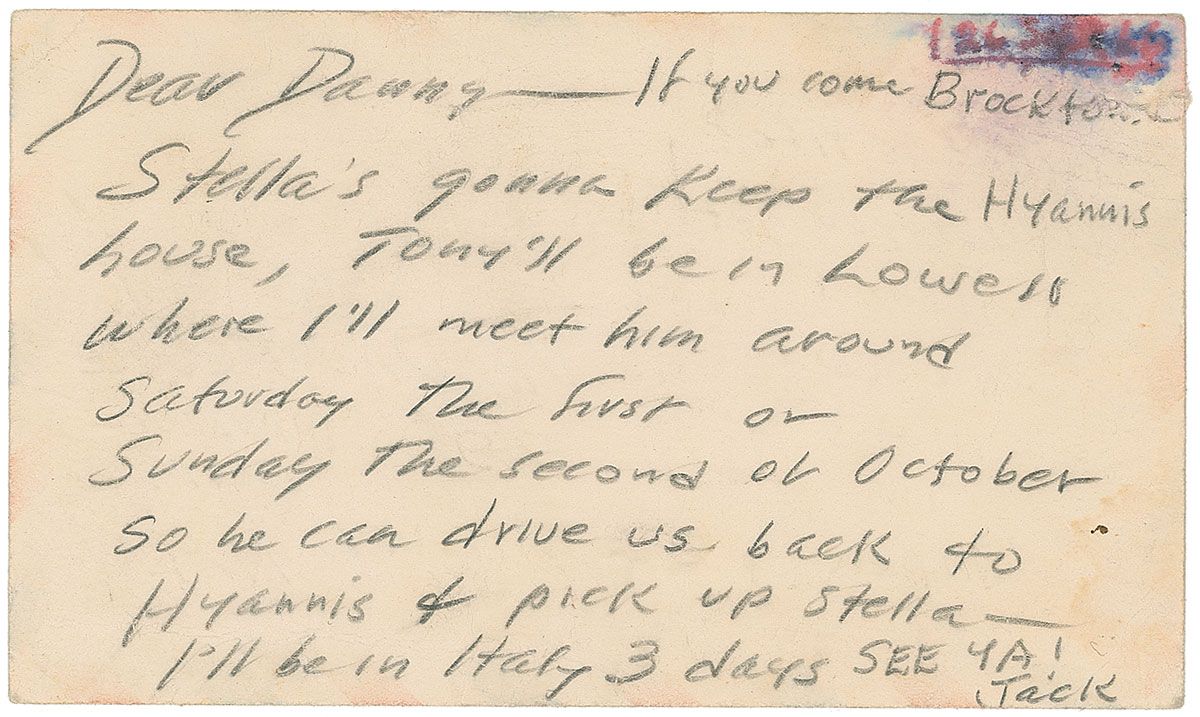 Dear Danny — If you come Brockton.
Stella's gonna keep the Hyannis
house, Tony'll be in Lowell
where I'll meet him around
Saturday the first or
Sunday the second of October
so he can drive us back to
Hyannis & pick up Stella —
I'll be in Italy 3 days SEE YA!
Jack